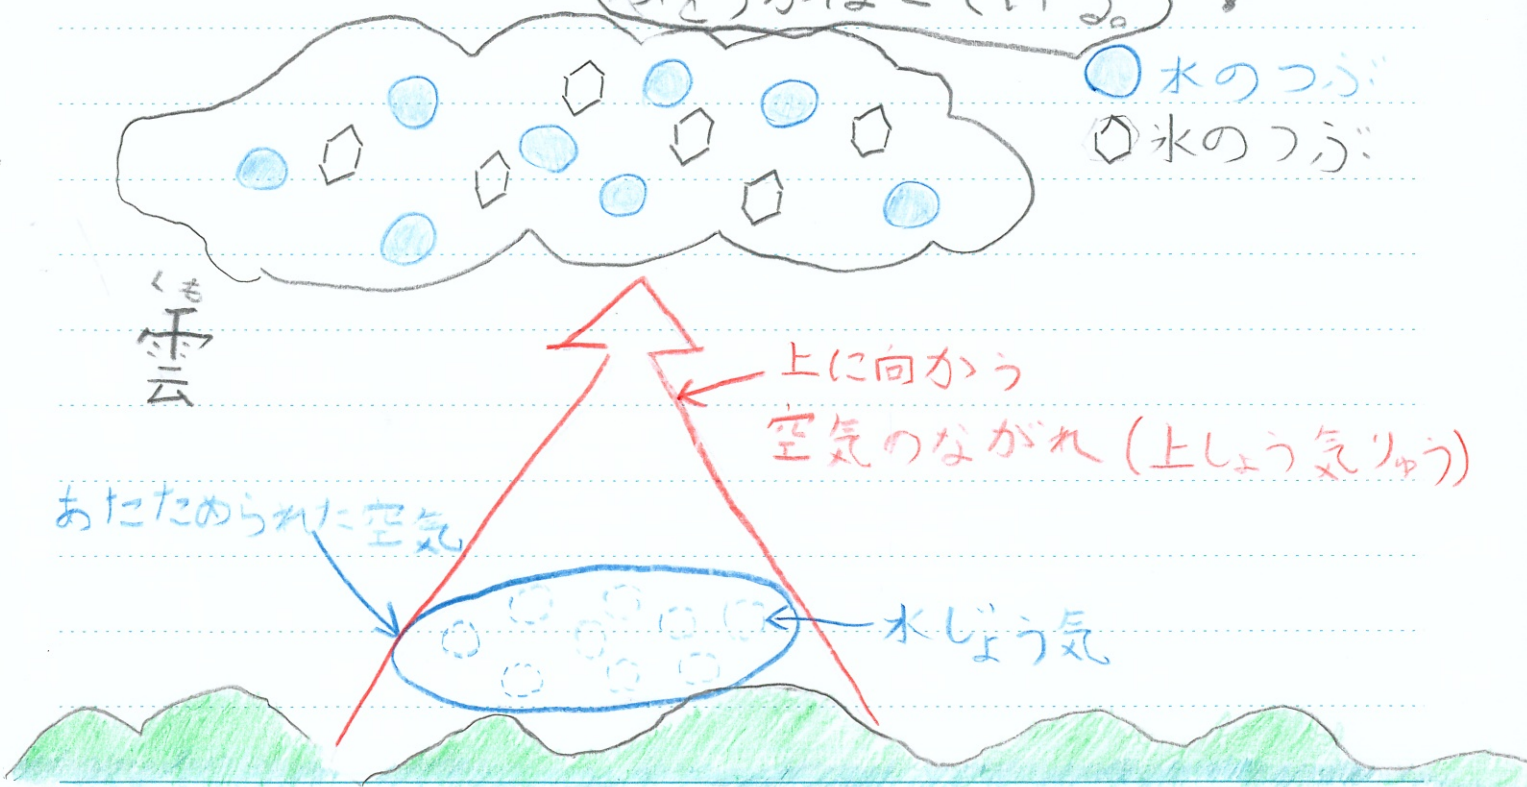 水のつぶ
氷のつぶ
くも
雲
上に向かう
空気のながれ(上しょう気りゅう)
あたためられた空気
水じょう気